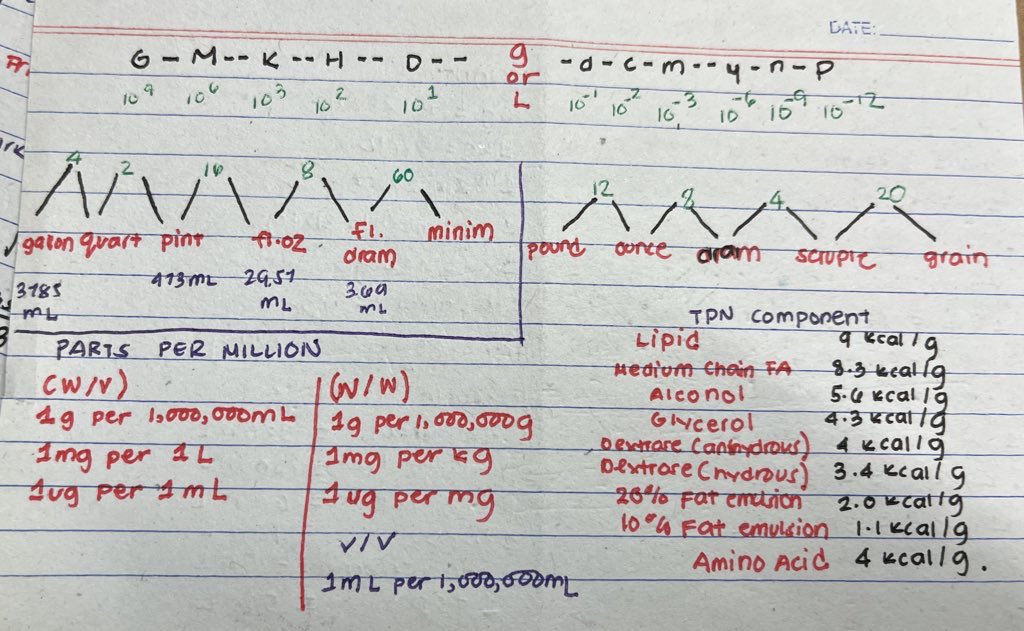 DATE:
G - M -- K -- H -- D -- g or L - d - c - m -- y - n - p
10^9 10^6 10^3 10^2 10^1 10^-1 10^-2 10^-3 10^-6 10^-9 10^-12
4 2 16 8 60
galon quart pint fl.oz fl. dram minim
3785 mL 473mL 29.57 mL 3.69 mL
12 8 4 20
pound ounce dram scruple grain
PARTS PER MILLION
(W/V)
1g per 1,000,000mL
1mg per 1L
1ug per 1mL
(W/W)
1g per 1,000,000g
1mg per kg
1ug per mg
V/V
1mL per 1,000,000mL
TPN component
Lipid 9 kcal/g
Medium Chain FA 8.3 kcal/g
Alcohol 5.6 kcal/g
Glycerol 4.3 kcal/g
Dextrose (anhydrous) 4 kcal/g
Dextrose (hydrous) 3.4 kcal/g
20% Fat emulsion 2.0 kcal/g
10% Fat emulsion 1.1 kcal/g
Amino Acid 4 kcal/g.